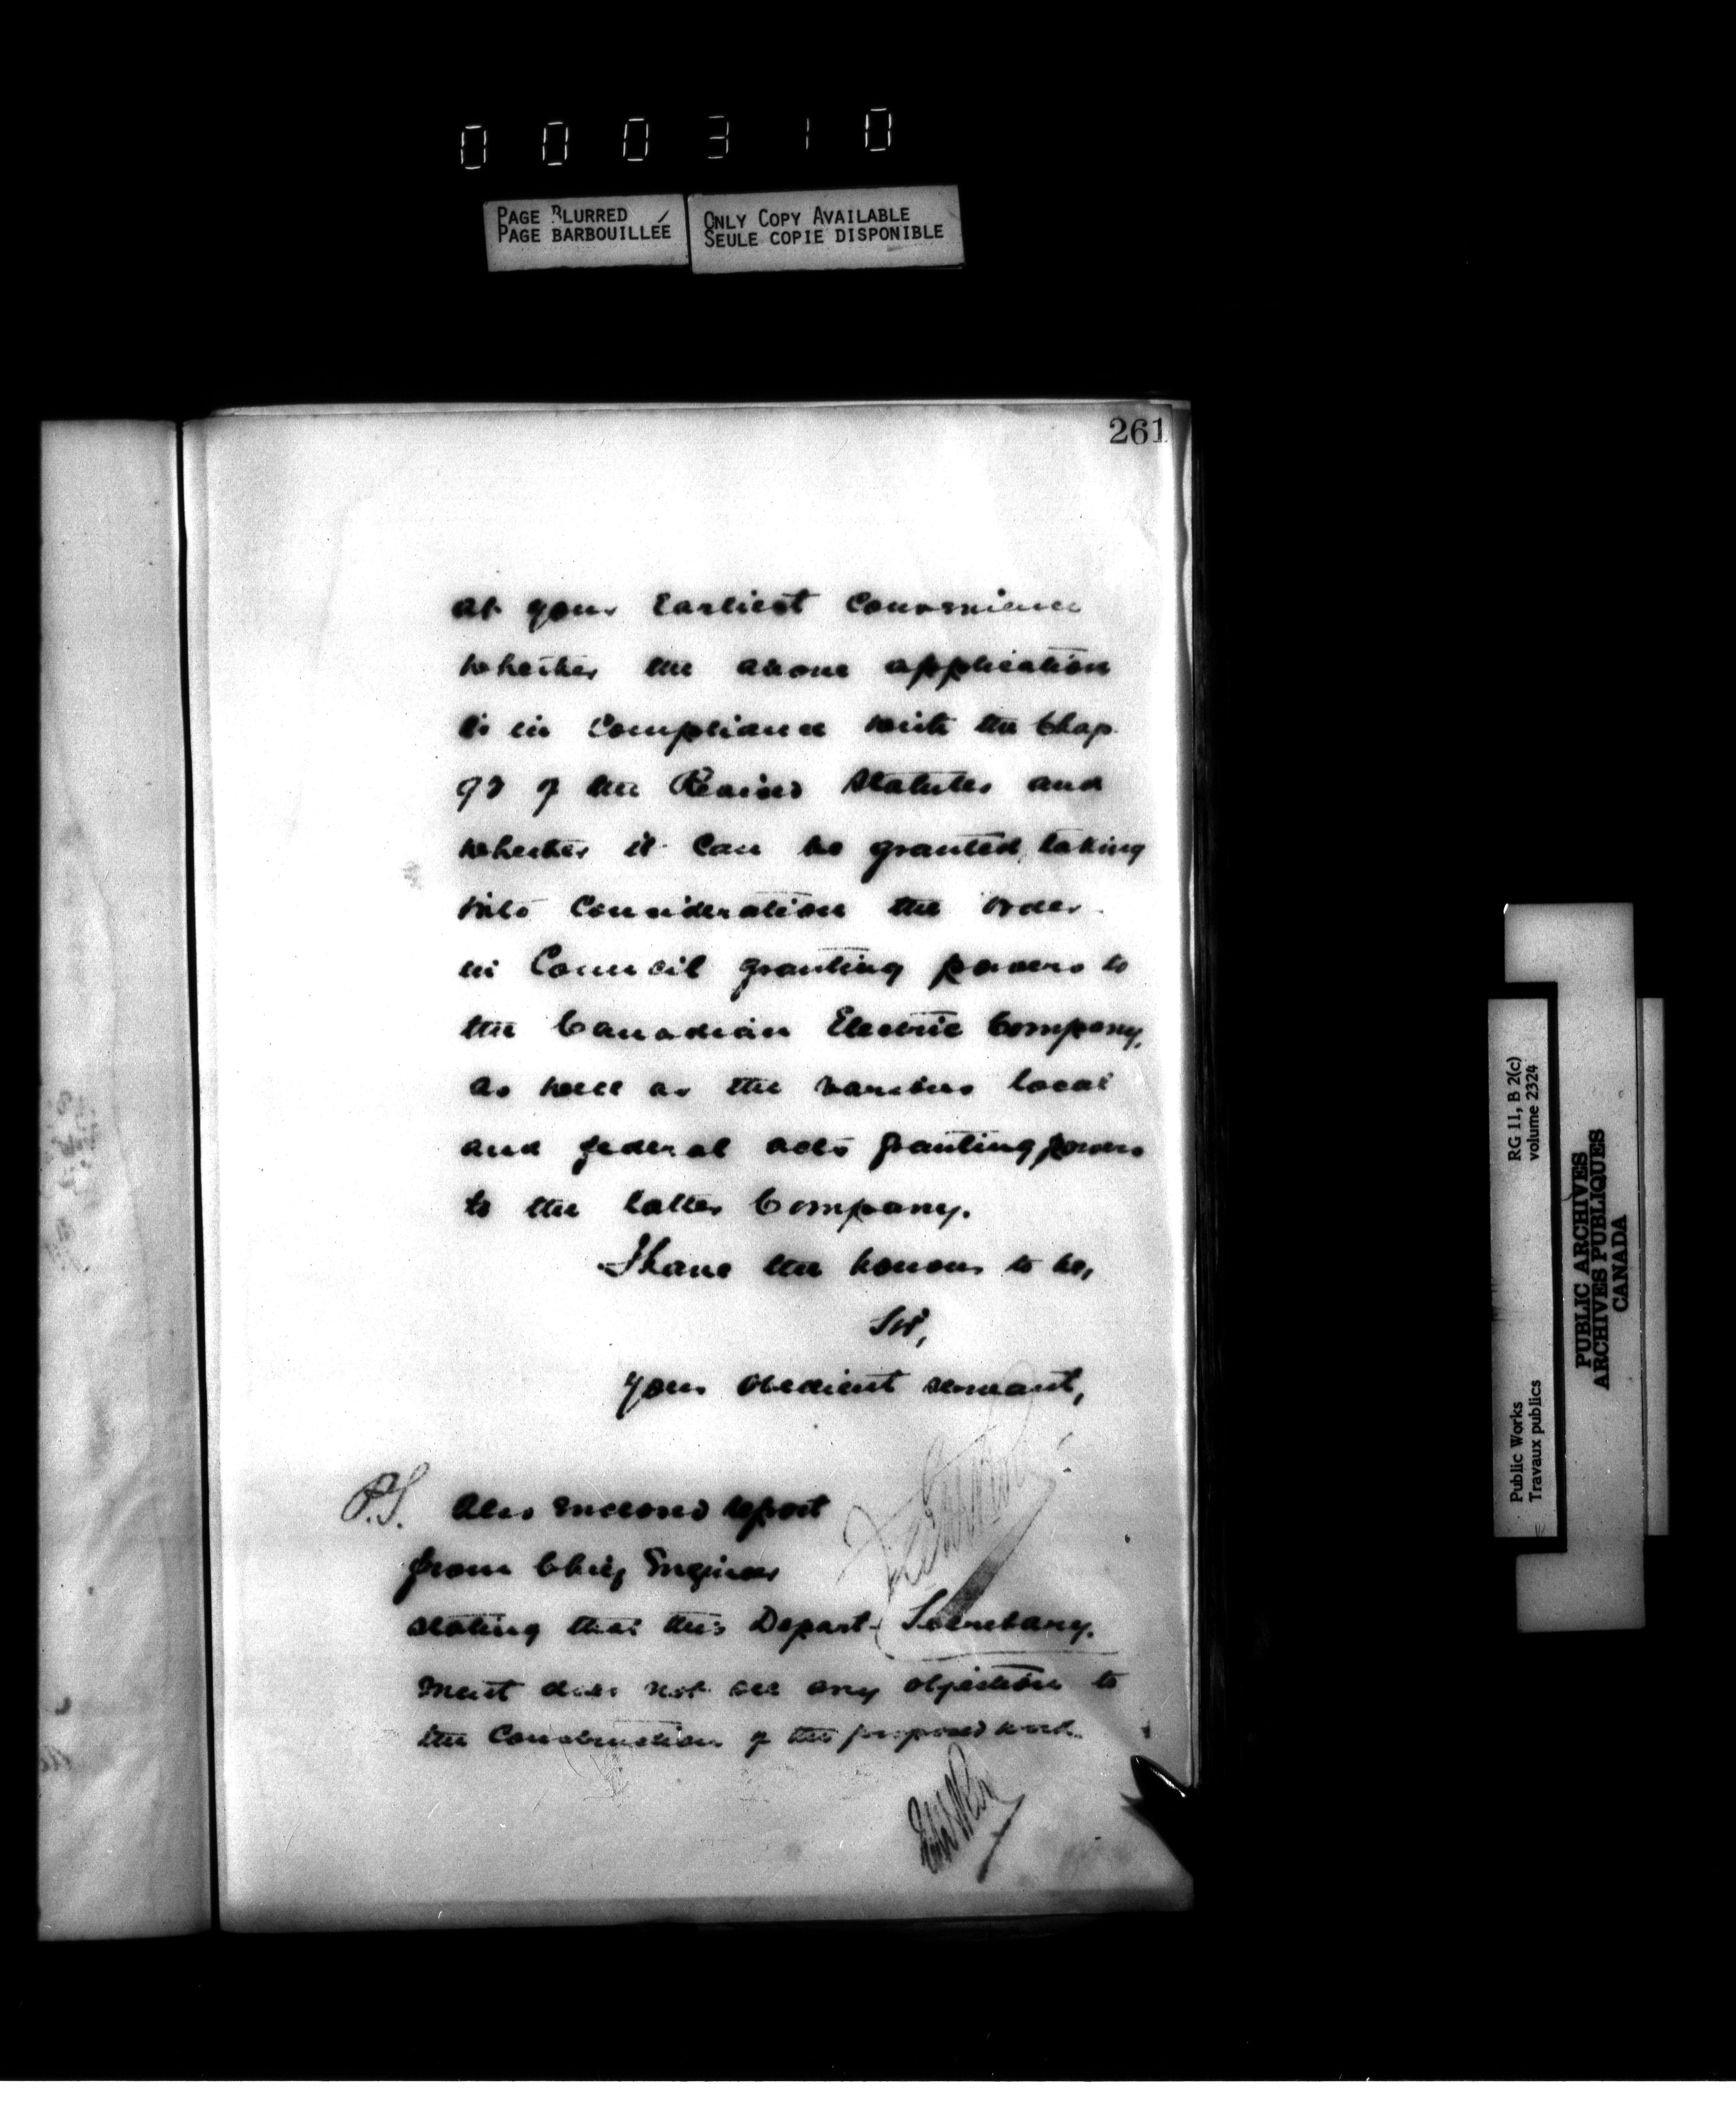 000310
PAGE BLURRED
PAGE BARBOUILLÉE
ONLY COPY AVAILABLE
SEULE COPIE DISPONIBLE
261
at your Earliest Convenience
whether the above application
is in Compliance with the Chap.
92 of the Revised Statutes and
whether it Can be granted, taking
into Consideration the order
in Council granting powers to
the Canadian Electric Company,
as well as the various local
and federal acts granting powers
to the latter Company.
I have the honour to be,
Sir,
your obedient servant,
P.S. Also enclosed report
from Chief Engineer
stating that this Depart-
Secretary.
ment does not see any objection to
the Construction of the proposed work.
RG 11, B 2(c)
volume 2324
Public Works
Travaux publics
PUBLIC ARCHIVES
ARCHIVES PUBLIQUES
CANADA